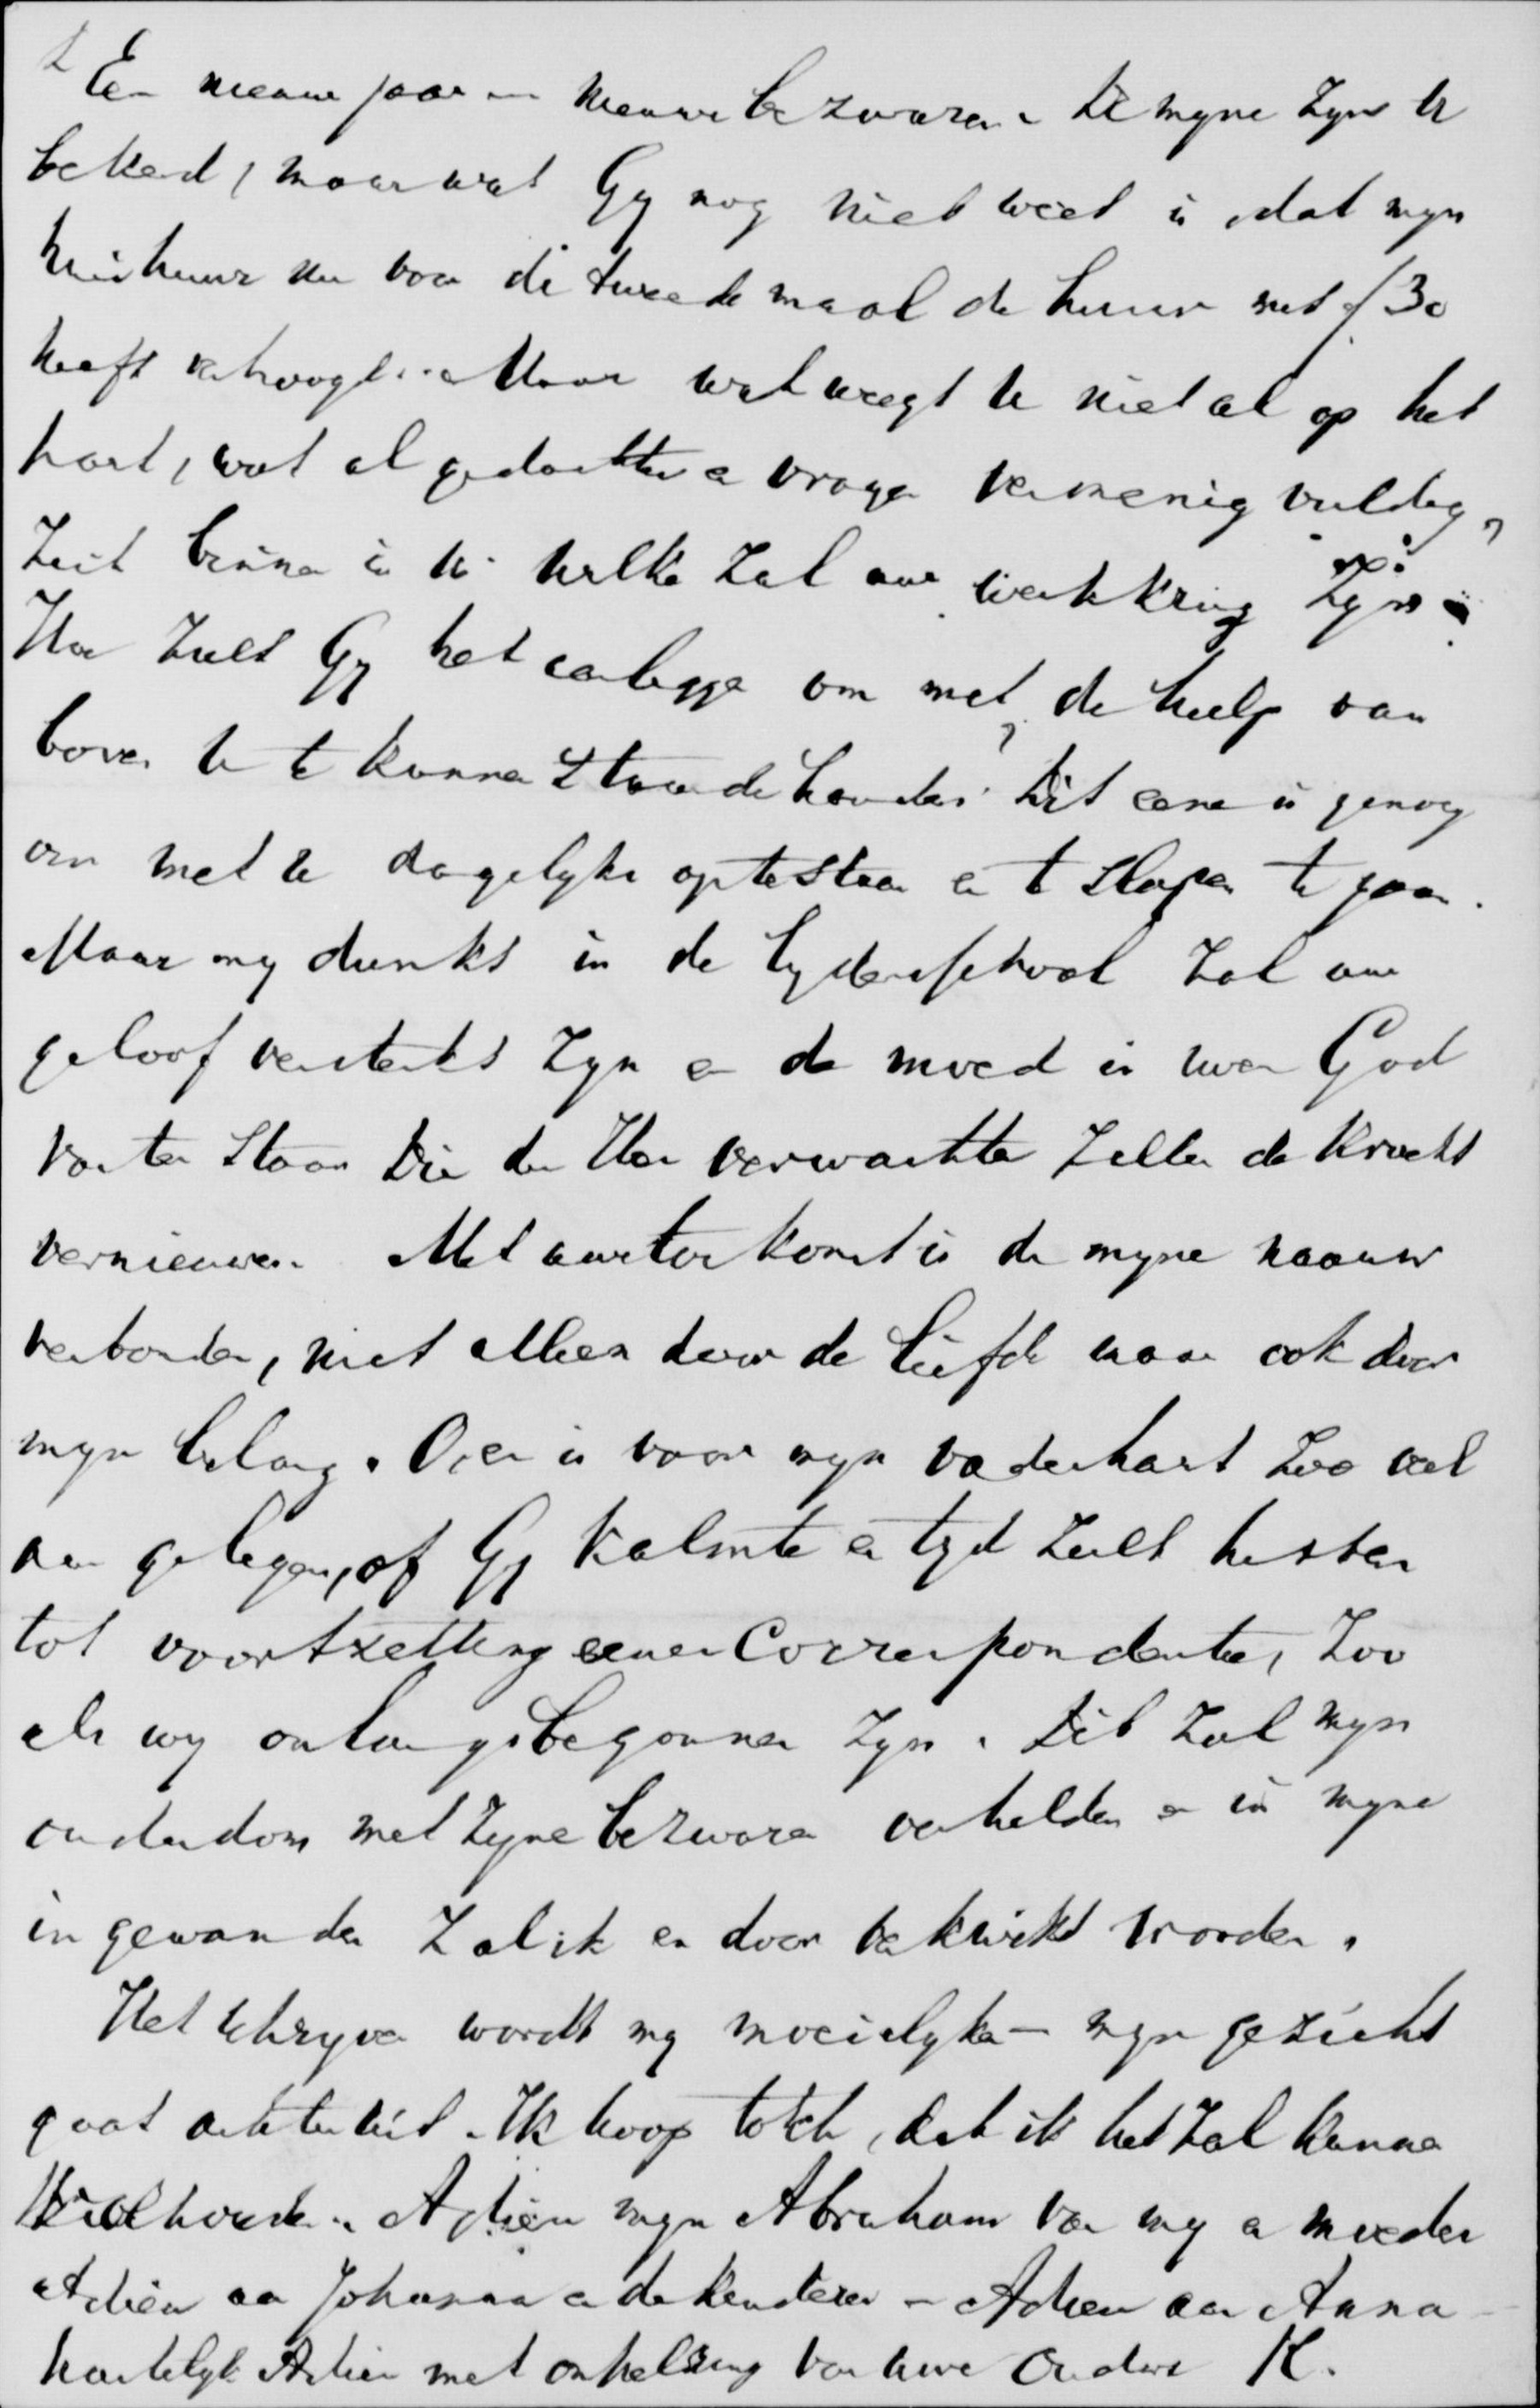 Een nieuw jaar en nieuwe bezwaren. De myne zyn U
bekend, maar wat Gy nog niet weet is, dat myn
huisheer nu voor de tweedemaal de huur met f30
heeft verhoogd. Maar wat weegt U niet al op het
hart, wat al gedachten en vragen vermenigvuldig,
zich binnen in U. Welke zal uw werkkring zyn?
Hoe zult Gy het aanleggen om met de hulp van
boven U te kunnen staande houden? Dit eene is genoeg
om met U dagelyks optestaan en te slapen te gaan.
Maar my dunkt in de lydensschool zal uw
geloof versterkt zyn en de moed in uwen God
vaster staan. Die den Heer verwachten zullen de kracht
vernieuwen. Met uwe toekomst is de myne naauw
verbonden, niet alleen door de liefde maar ook door
myn belang. O, er is voor myn vaderhart zoo veel
aan gelegen, of Gy kalmte en tyd zult hebben
tot voortzetting eener Correspondentie, zoo
als wy onlangs begonnen zyn. Dit zal myn
ouderdom met zyne bezwaren verhelderen en in myne
ingewanden zal ik er door verkwikt worden.
Het schryven wordt my moeielyker – myn gezicht
gaat achteruit. Ik hoop toch, dat ik het zal kunnen
volhouden. Adieu myn Abraham van my en moeder
Adieu aan Johanna en de kinderen – Adieu aan Anna –
hartelyk Adieu met omhelzing van uwe Ouders K.